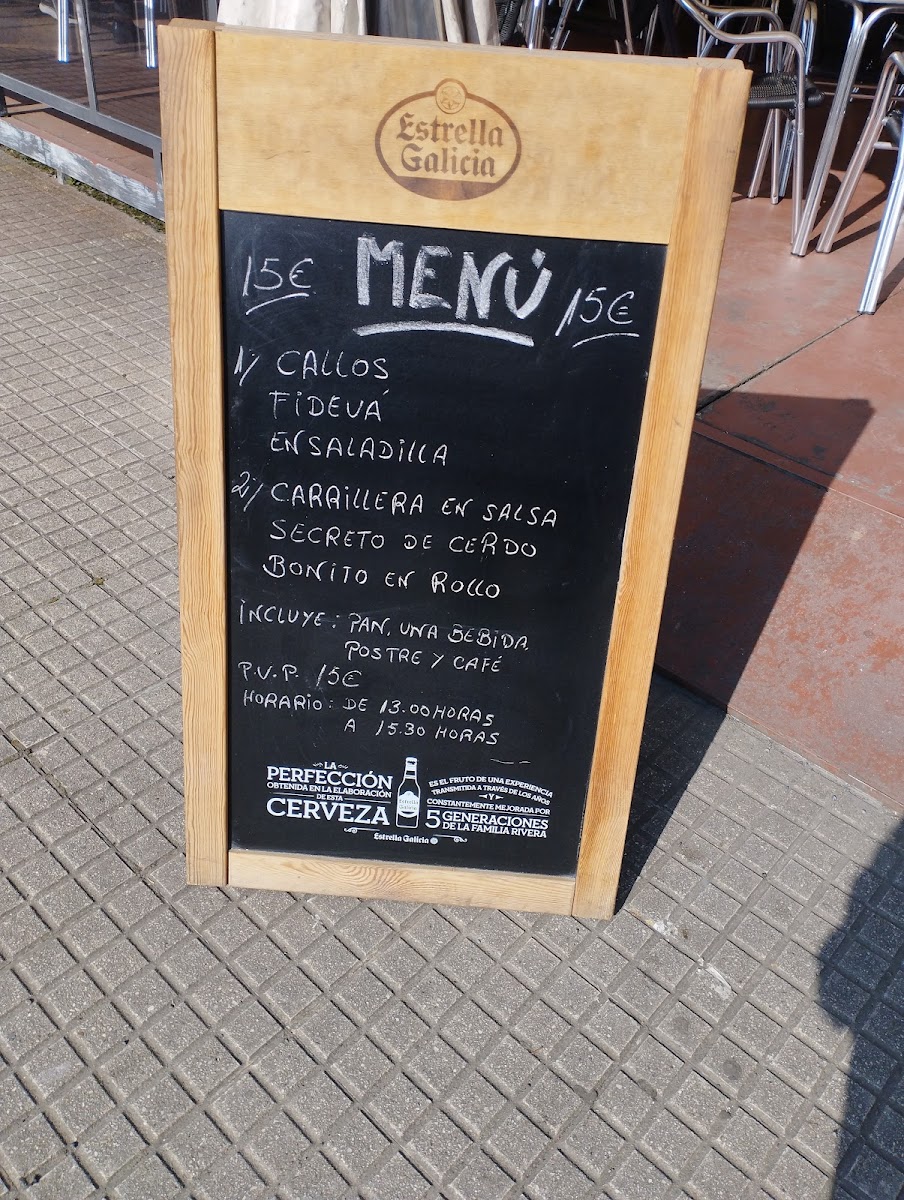 Estrella
Galicia
15€ MENÚ 15€
1/ CALLOS
FIDEVÁ
ENSALADILLA
2/ CARRILLERA EN SALSA
SECRETO DE CERDO
BONITO EN ROLLO
INCLUYE: PAN, UNA BEBIDA,
POSTRE Y CAFÉ
P.V.P. 15€
HORARIO: DE 13.00 HORAS
A 15.30 HORAS
LA
PERFECCIÓN
OBTENIDA EN LA ELABORACIÓN
DE ESTA
CERVEZA
Estrella
Galicia
ES EL FRUTO DE UNA EXPERIENCIA
TRANSMITIDA A TRAVÉS DE LOS AÑOS
Y
CONSTANTEMENTE MEJORADA POR
5 GENERACIONES
DE LA FAMILIA RIVERA
Estrella Galicia